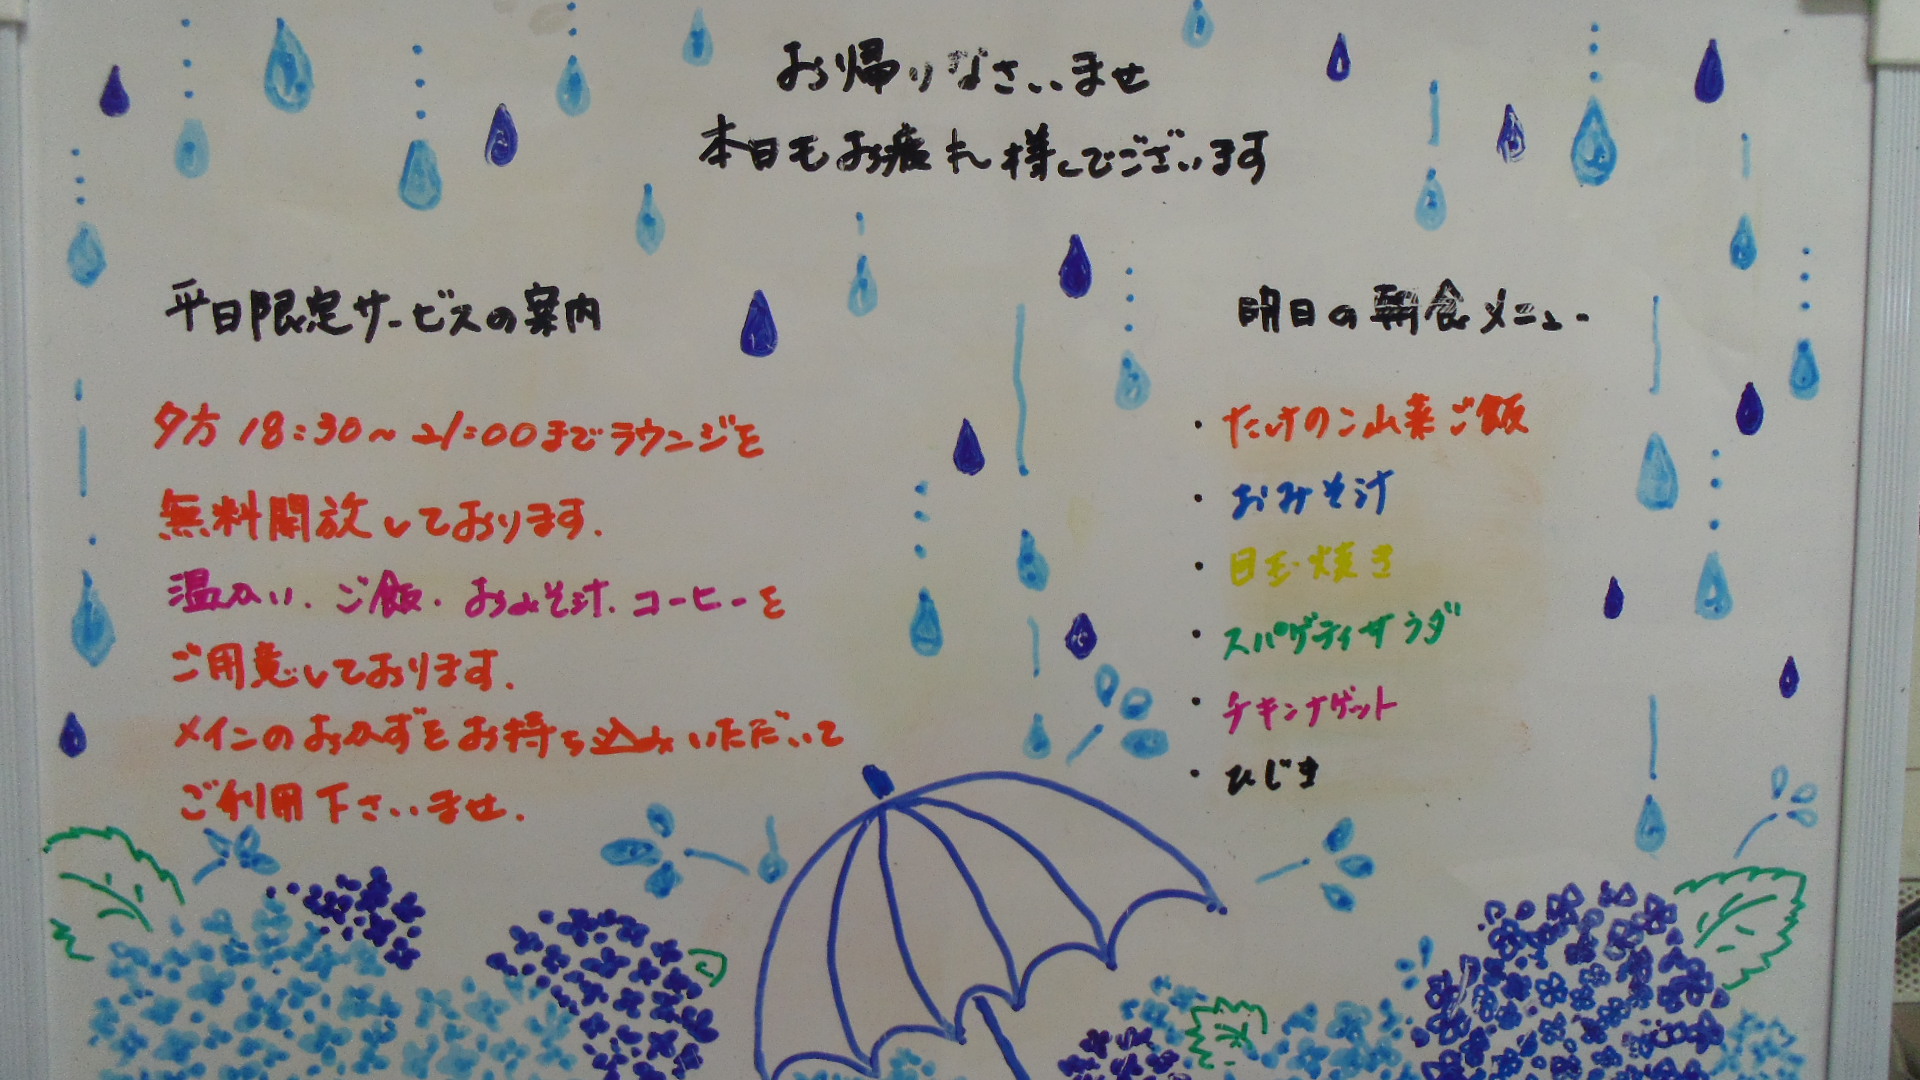 お帰りなさいませ
本日もお疲れ様でございます
平日限定サービスの案内
夕方 18:30～21:00までラウンジを
無料開放しております.
温かい.ご飯.おみそ汁.コーヒーを
ご用意しております.
メインのおかずをお持ち込みいただいて
ご利用下さいませ.
明日の朝食メニュー
・たけのこ山菜ご飯
・おみそ汁
・目玉焼き
・スパゲティサラダ
・チキンナゲット
・ひじき